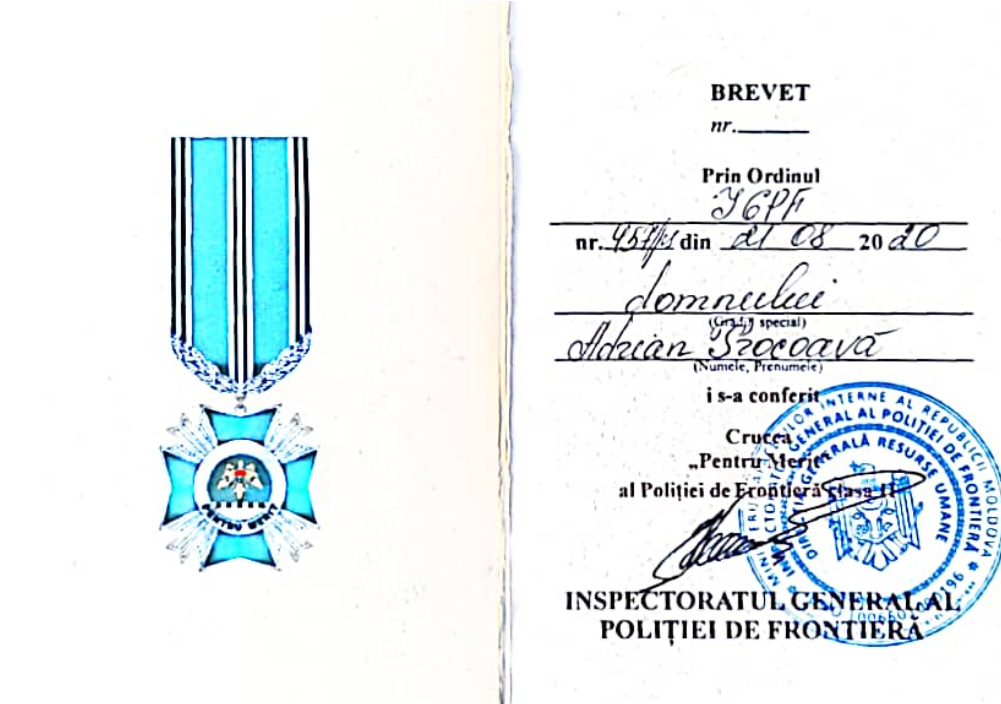 PENTRU MERIT
BREVET
nr.
Prin Ordinul
IGPF
nr. din 21 08 2020
domnului
(Grad special)
Adrian
(Numele, Prenumele)
i s-a conferit
Crucea
„Pentru Merit”
al Poliției de Frontieră clasa II
INSPECTORATUL GENERAL AL
POLIȚIEI DE FRONTIERĂ
INTERNE AL REPUBLICII MOLDOVA
GENERAL AL POLIȚIEI DE FRONTIERĂ
RESURSE UMANE